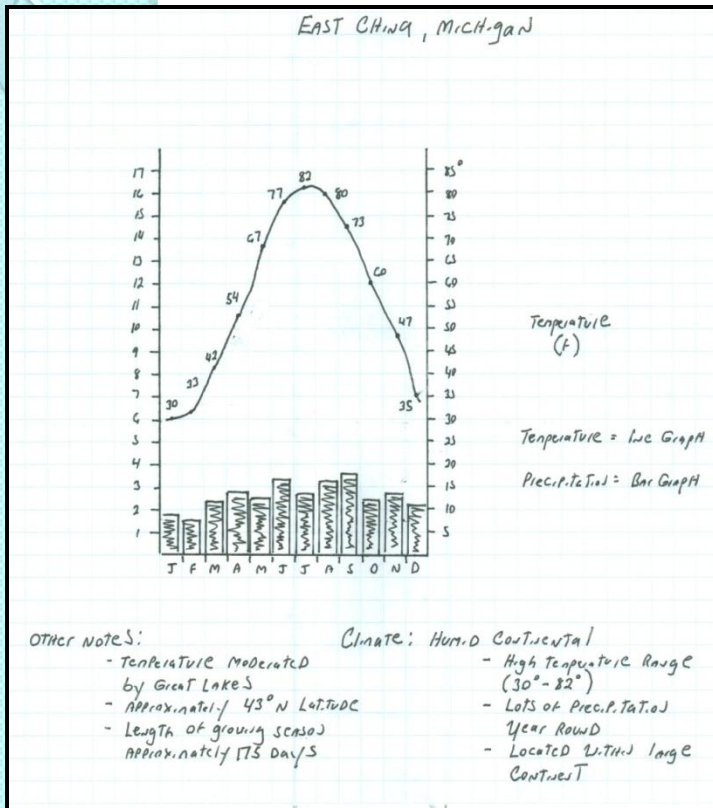 EAST CHINA, MICHIGAN
17
16
15
14
13
12
11
10
9
8
7
6
5
4
3
2
1
30
33
42
54
67
77
82
80
73
60
47
35
85°
80
75
70
65
60
55
50
45
40
35
30
25
20
15
10
5
J F M A M J J A S O N D
Temperature
(F)
Temperature = Line Graph
Precipitation = Bar Graph
OTHER NOTES:
- Temperature moderated
by Great Lakes
- Approximately 43° N Latitude
- Length of growing season
Approximately 175 Days
Climate: Humid Continental
- High Temperature Range
(30° - 82°)
- Lots of Precipitation
Year Round
- Located within large
Continent